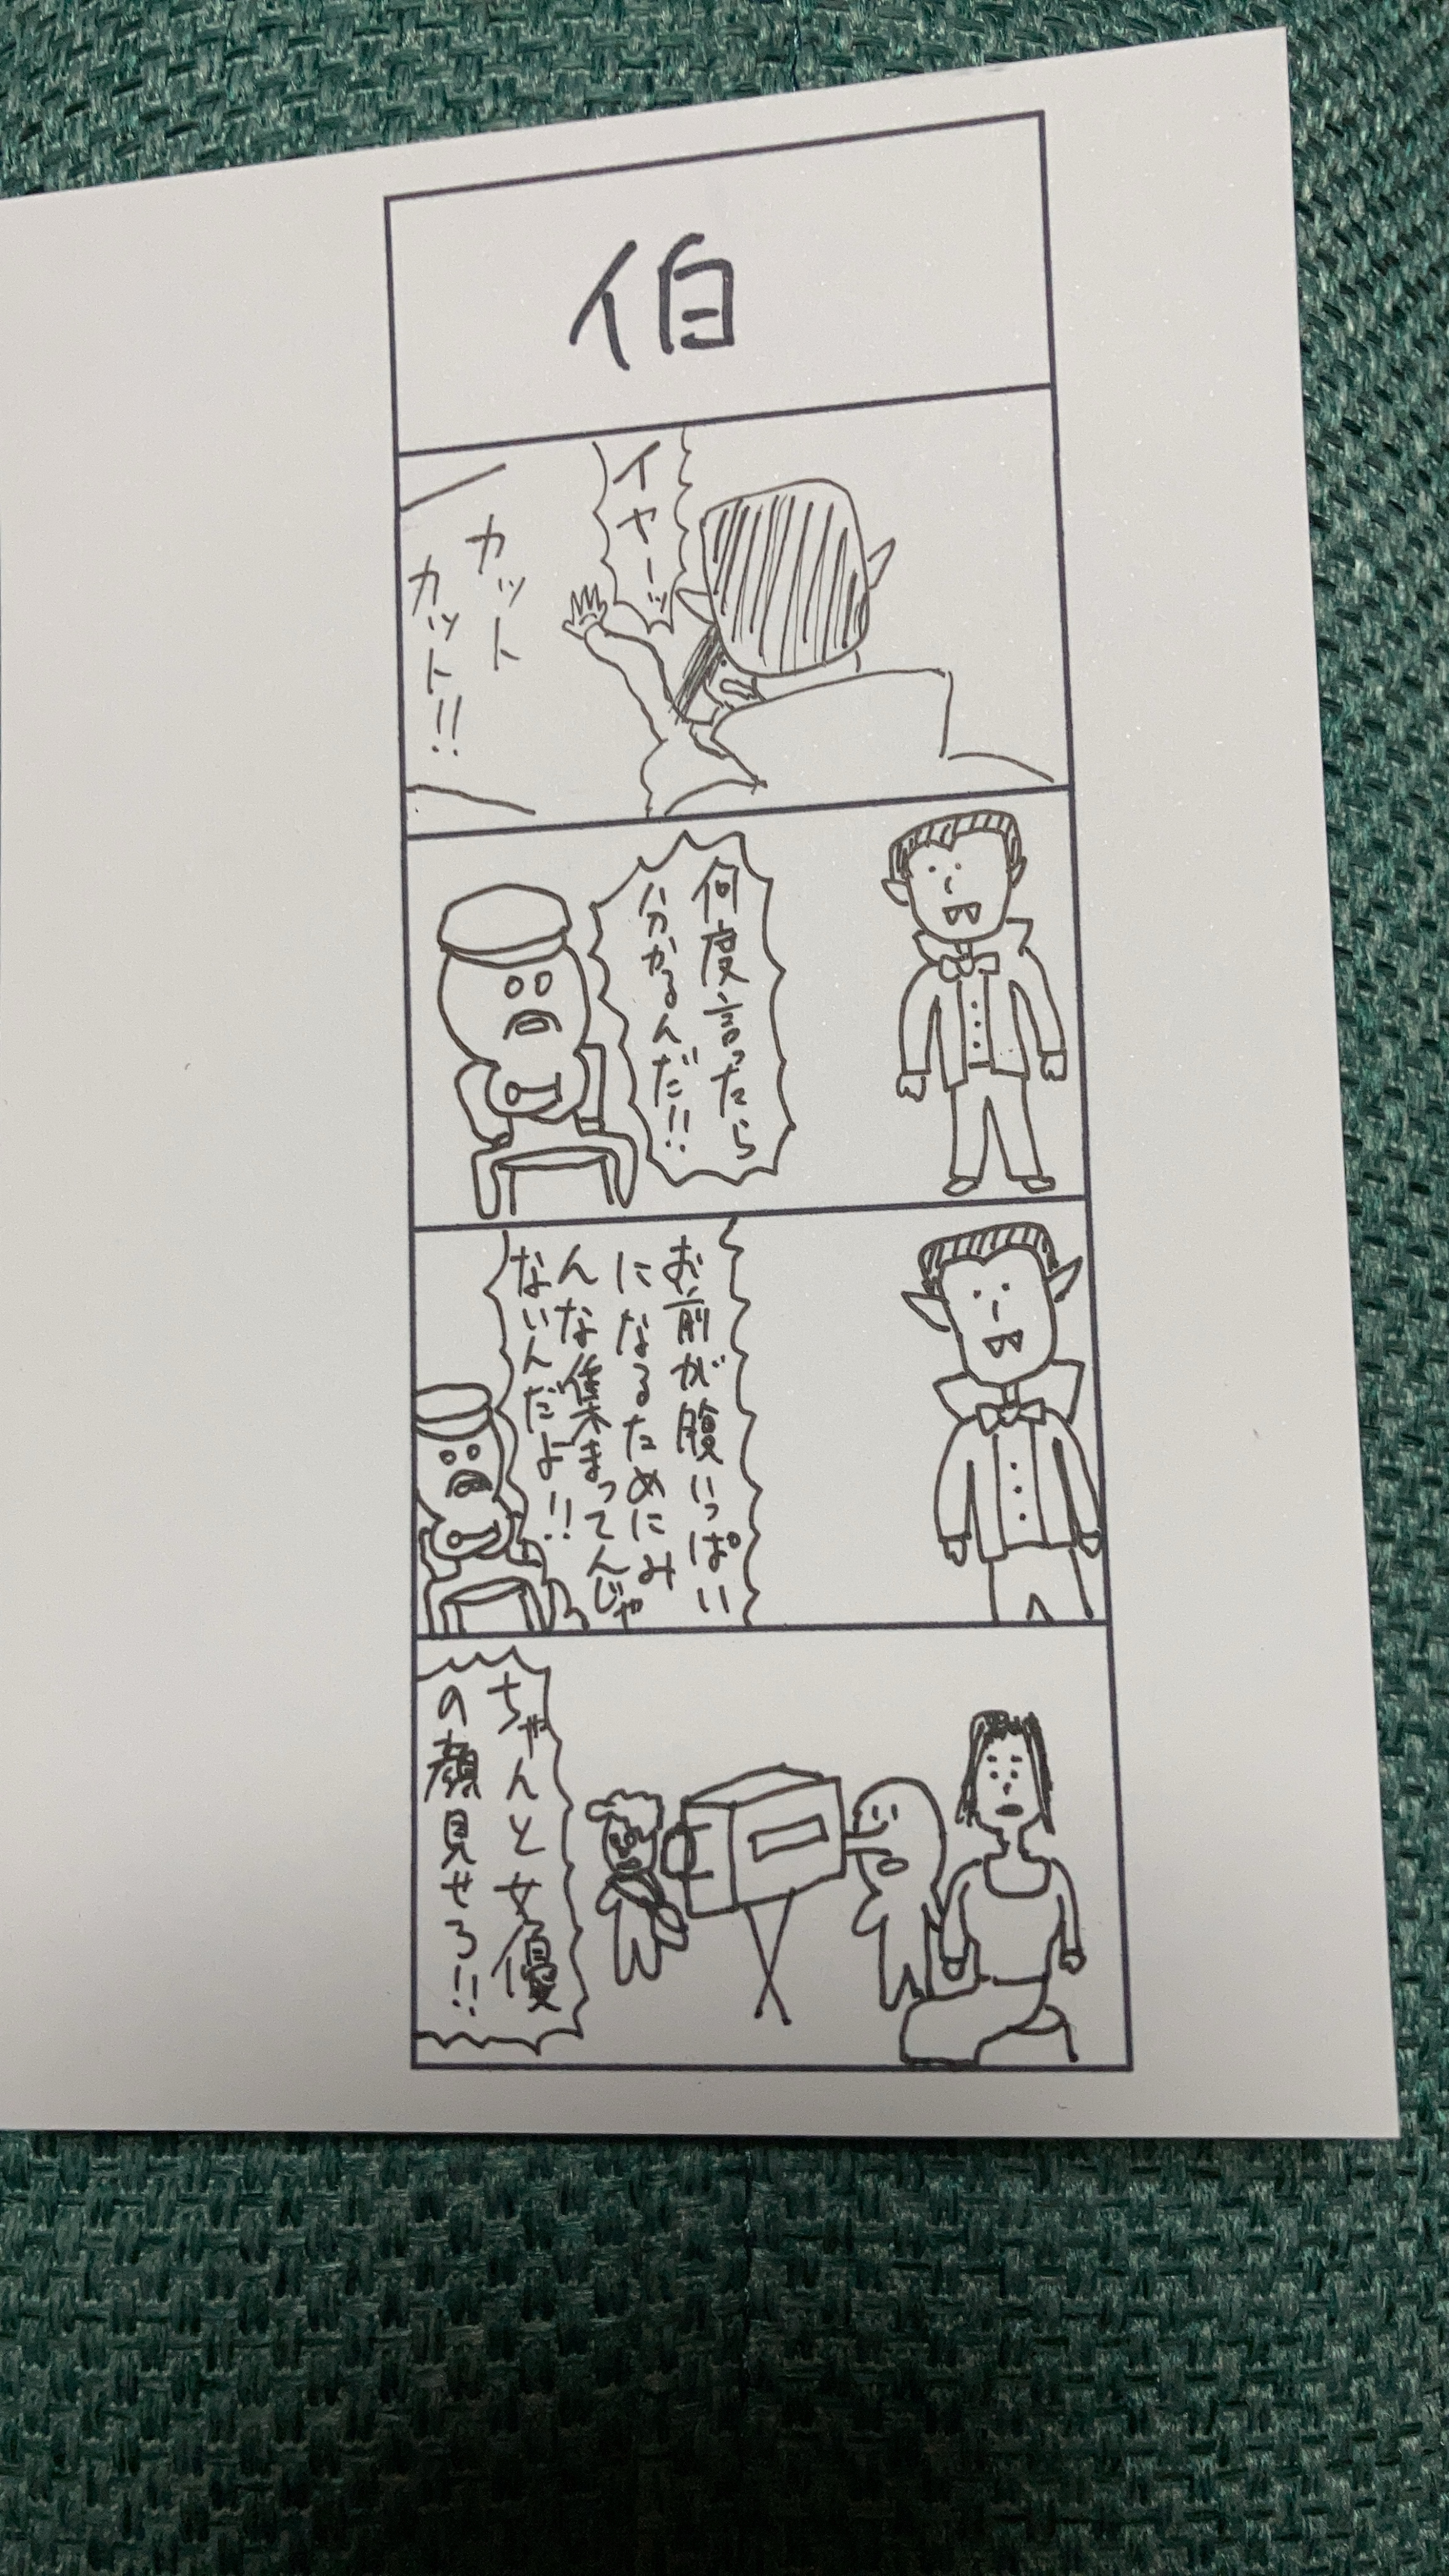 伯
イヤーッ
カット
カット!!
何度言ったら
分かるんだ!!
お前が腹いっぱい
になるためにみ
んな集まってんじゃ
ないんだよ!!
ちゃんと女優
の顔見せろ!!